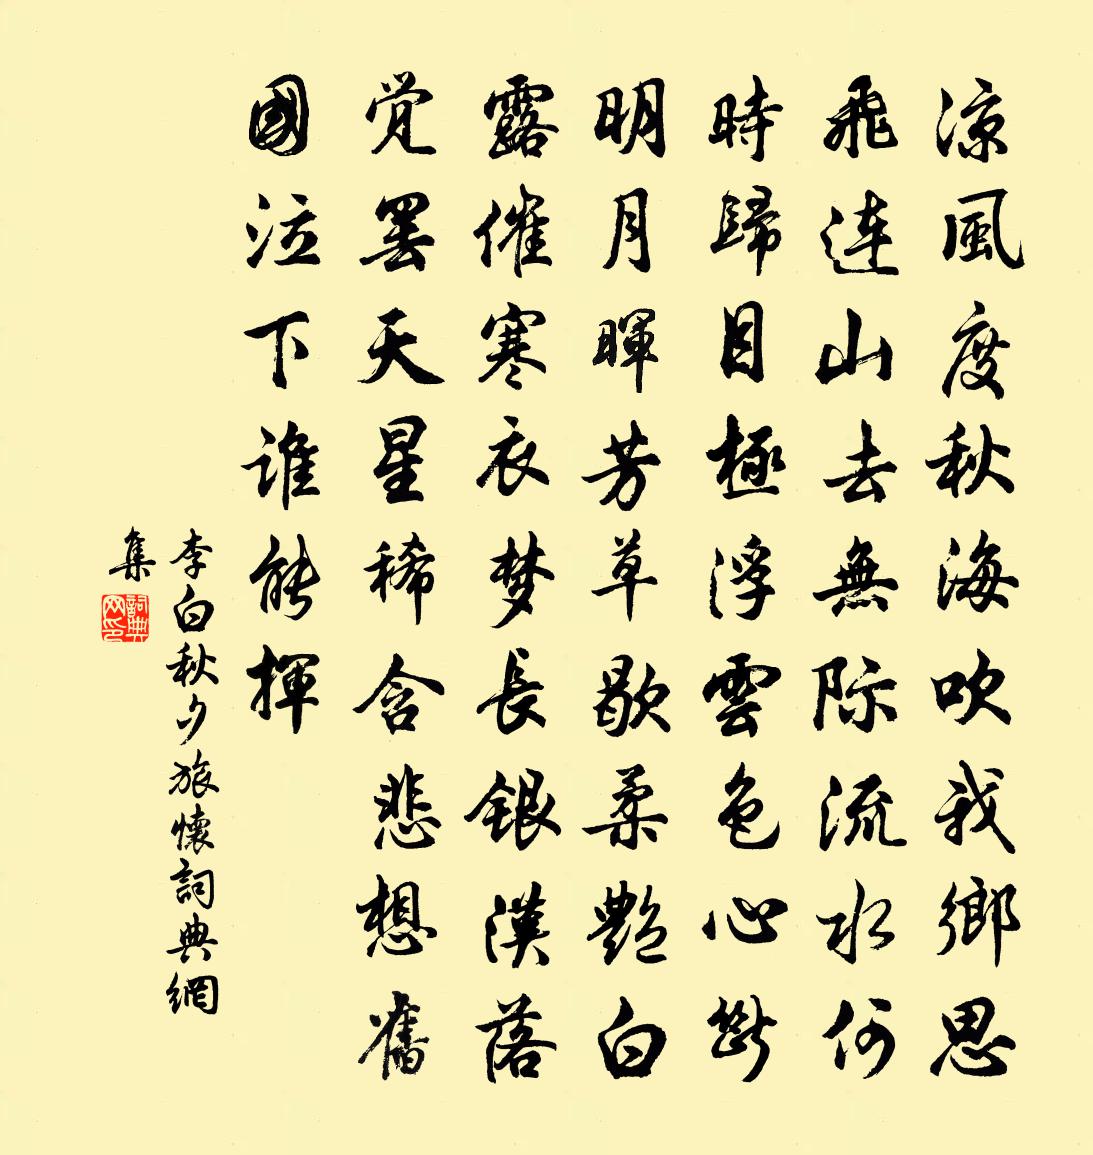 涼風度秋海吹我鄉思
飛連山去無際流水何
時歸目極浮雲色心斷
明月暉芳草歇柔艷白
露催寒衣梦長銀漢落
覚罢天星稀含悲想舊
國泣下谁能揮
李白秋夕旅懷詞典網
集
詞典
网印